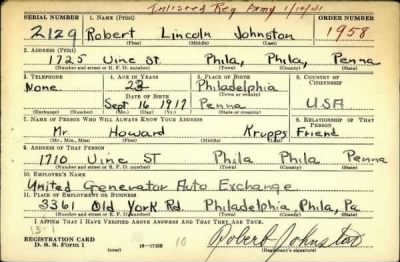 Inlisted Reg Army 1/10/41
SERIAL NUMBER 1. NAME (Print) ORDER NUMBER
2129 Robert Lincoln Johnston 1958
(First) (Middle) (Last)
2. ADDRESS (Print)
1725 Vine St. Phila, Phila, Penna
(Number and street or R. F. D. number) (Town) (County) (State)
3. TELEPHONE 4. AGE IN YEARS 5. PLACE OF BIRTH 6. COUNTRY OF CITIZENSHIP
None. 23 Philadelphia
DATE OF BIRTH (Town or county)
Sept 16 1917 Penna USA
(Exchange) (Number) (Mo.) (Day) (Yr.) (State or country)
7. NAME OF PERSON WHO WILL ALWAYS KNOW YOUR ADDRESS 8. RELATIONSHIP OF THAT PERSON
Mr. Howard Krupps Friend
(Mr., Mrs., Miss) (First) (Middle) (Last)
9. ADDRESS OF THAT PERSON
1710 Vine ST Phila Phila Penna
(Number and street or R. F. D. number) (Town) (County) (State)
10. EMPLOYER'S NAME
United Generator Auto Exchange
11. PLACE OF EMPLOYMENT OR BUSINESS
3361 Old York Rd. Philadelphia, Phila, Pa
(Number and street or R. F. D. number) (Town) (County) (State)
I AFFIRM THAT I HAVE VERIFIED ABOVE ANSWERS AND THAT THEY ARE TRUE.
REGISTRATION CARD
D. S. S. Form 1 (over) 16—17105 10 Robert Johnston
(Registrant's signature)